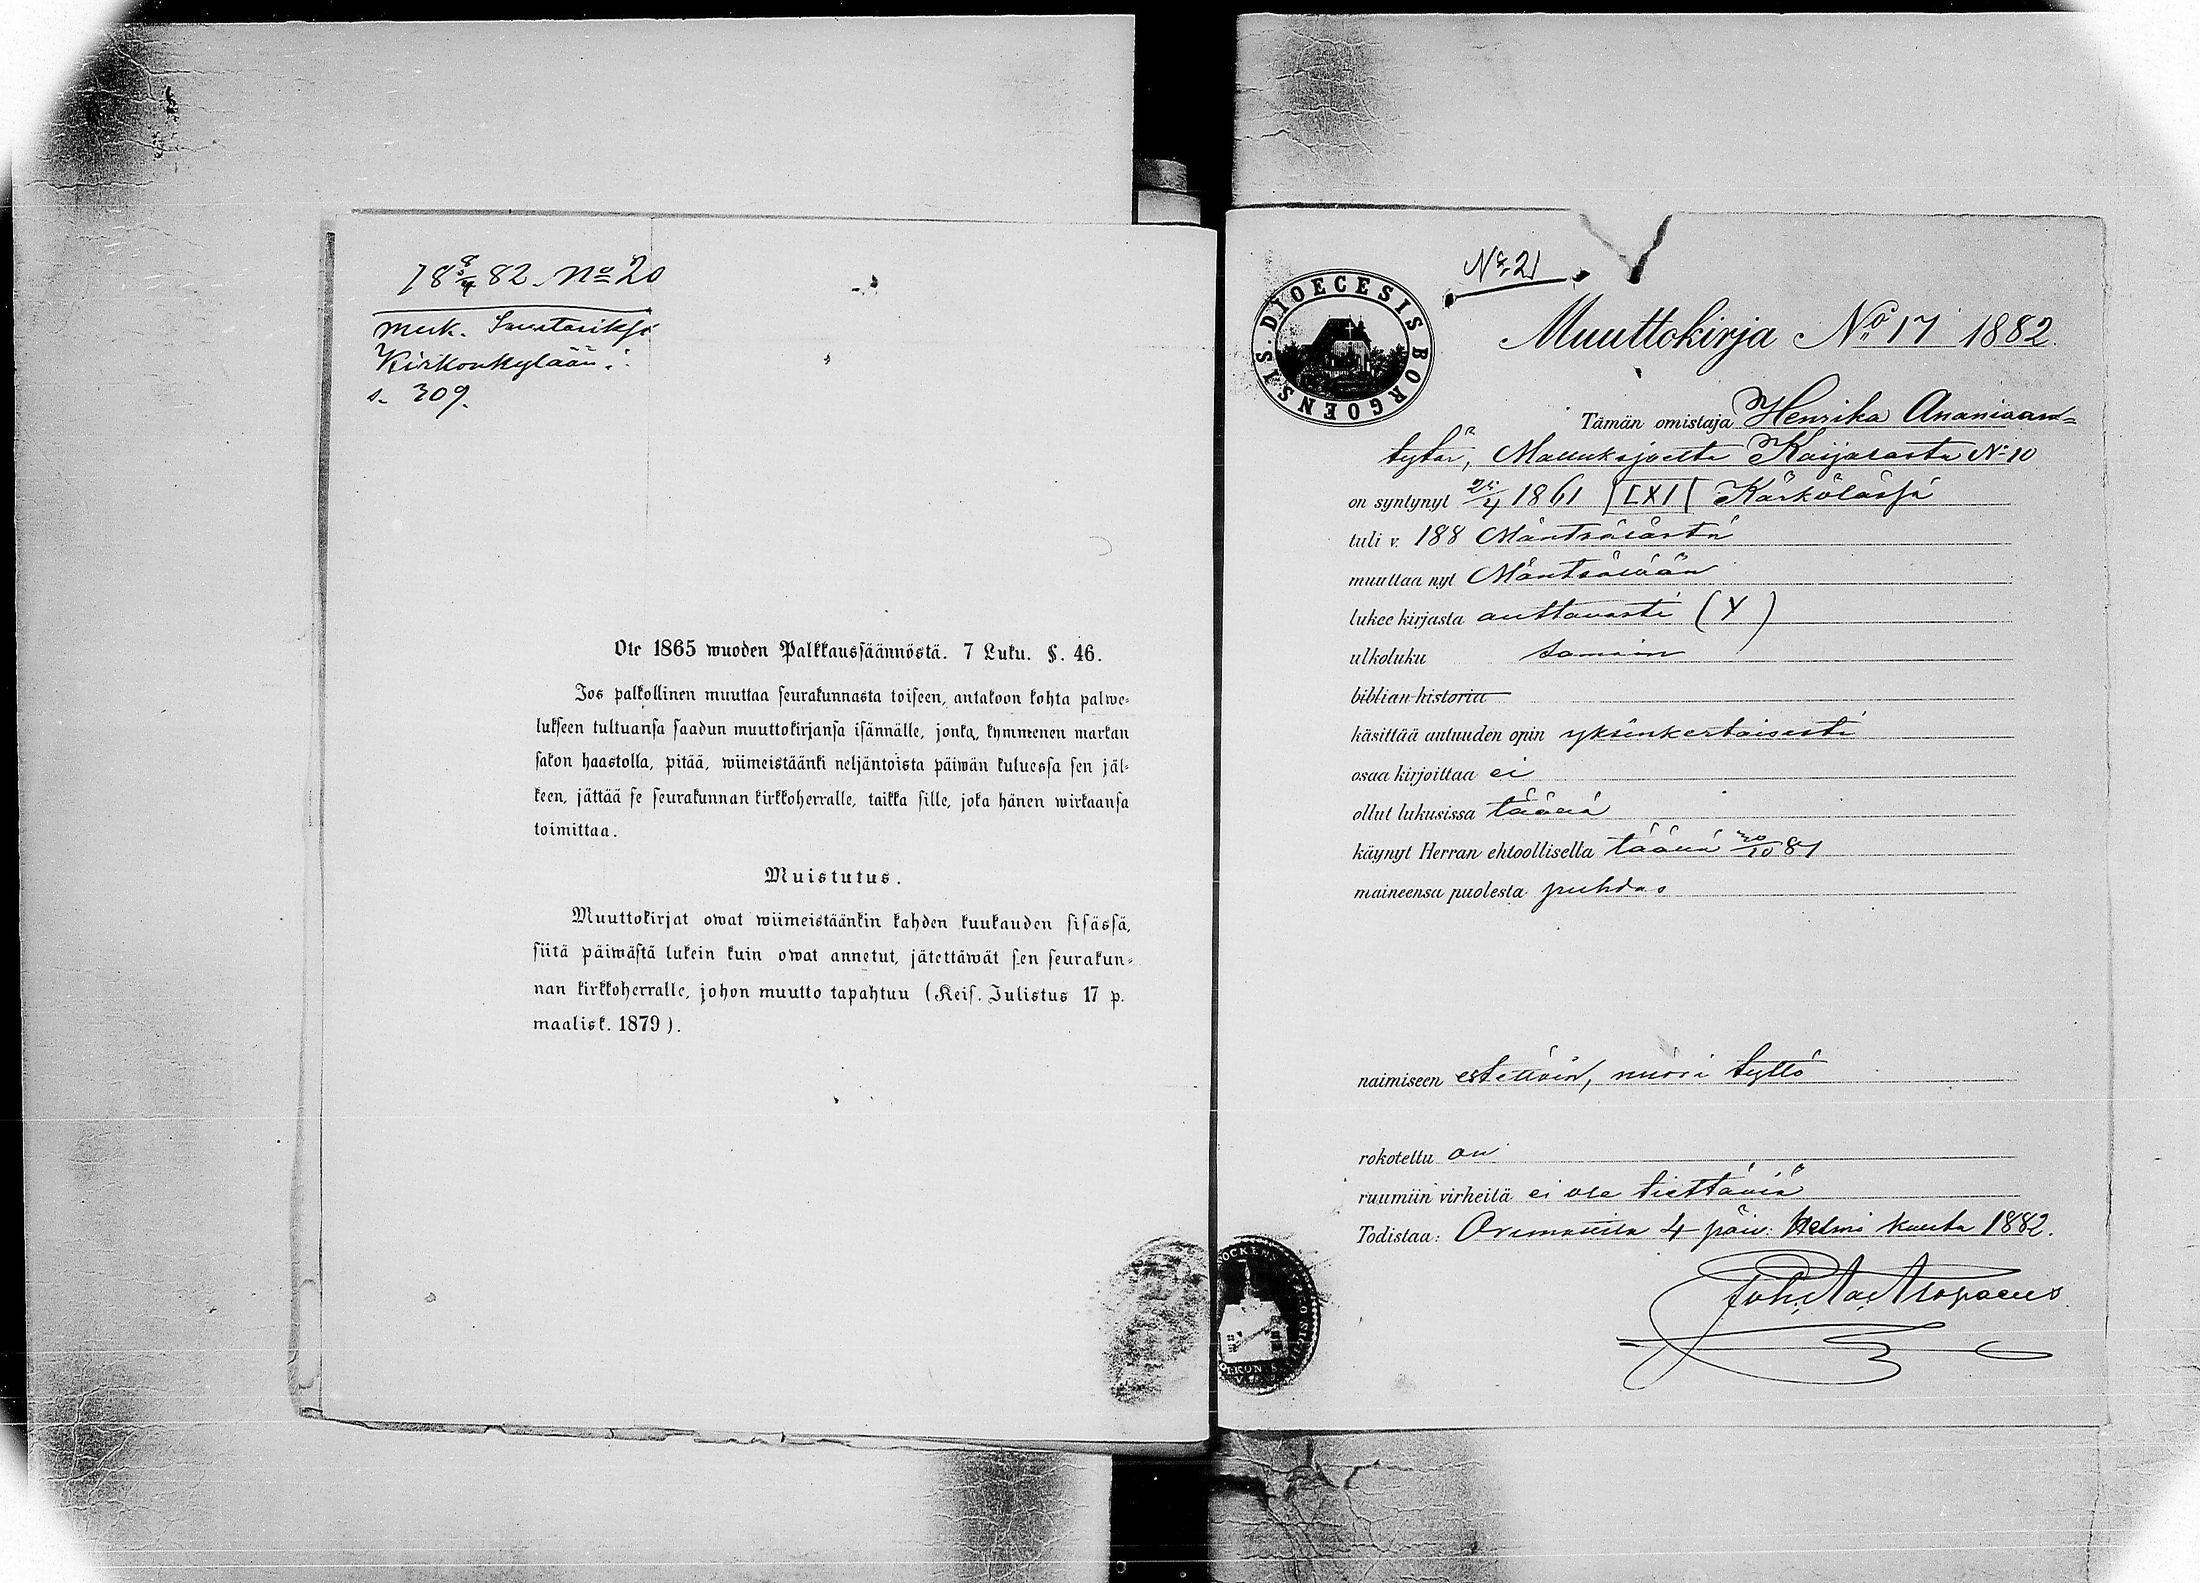 18 8/4 82 No 20
merk.
Kirkonkylään
s. 309.
Ote 1865 wuoden Palkkaussäännöstä. 7 Luku. §. 46.
Jos palkollinen muuttaa seurakunnasta toiseen, antakoon kohta palwe=
lukseen tultuansa saadun muuttokirjansa isännälle, jonka, kymmenen markan
sakon haastolla, pitää, wiimeistäänki neljäntoista päiwän kuluessa sen jäl=
keen, jättää se seurakunnan kirkkoherralle, taikka sille, joka hänen wirkaansa
toimittaa.
Muistutus.
Muuttokirjat owat wiimeistäänkin kahden kuukauden sisässä,
siitä päiwästä lukein kuin owat annetut, jätettäwät sen seurakun=
nan kirkkoherralle, johon muutto tapahtuu (Keis. Julistus 17 p.
maalisk. 1879).
No 21
SIS. DIOECESIS BORGOENSIS
Muuttokirja No 17 1882.
Tämän omistaja Henrika Ananiaan=
tytär, Mallusjoelta No 10
on syntynyt 25/4 1861 (LXI) Kärkölässä
tuli v. 188 Mäntsälästä
muuttaa nyt Mäntsälään
lukee kirjasta auttavasti (X)
ulkoluku samoin
biblian historia
käsittää autuuden opin yksinkertaisesti
osaa kirjoittaa ei
ollut lukusissa täällä
käynyt Herran ehtoollisella täällä 30/10 81
maineensa puolesta puhdas
naimiseen esteetöin, nuori tyttö
rokotettu on
ruumiin virheitä ei ole tiettäviä
Todistaa: Orimattila 4 päiv. Helmi kuuta 1882.